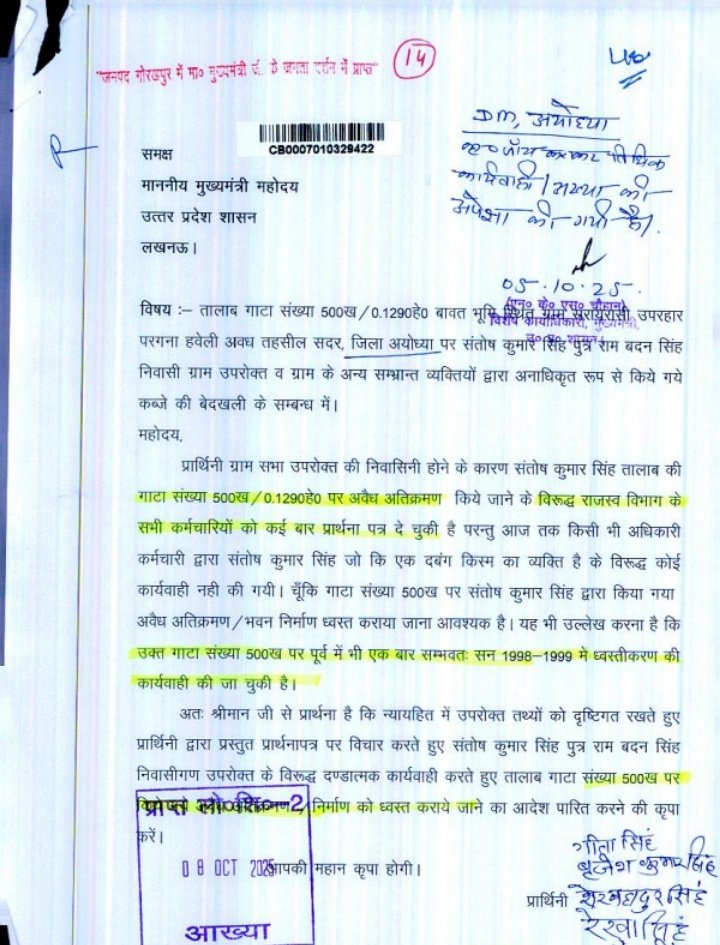 "जनपद गोरखपुर में मा० मुख्यमंत्री जी के जनता दर्शन में प्राप्त"
14
DM, अयोध्या
कार्यवाही / आख्या की
अपेक्षा की गयी है।
05.10.25.
(एन० के० एस० चौहान)
विशेष कार्याधिकारी, मुख्यमंत्री,
उ० प्र० शासन
CB0007010329422
समक्ष
माननीय मुख्यमंत्री महोदय
उत्तर प्रदेश शासन
लखनऊ।
विषय :– तालाब गाटा संख्या 500ख/0.1290हे0 बावत भूमि स्थित ग्राम सरायरासी उपरहार
परगना हवेली अवध तहसील सदर, जिला अयोध्या पर संतोष कुमार सिंह पुत्र राम बदन सिंह
निवासी ग्राम उपरोक्त व ग्राम के अन्य सम्भ्रान्त व्यक्तियों द्वारा अनाधिकृत रूप से किये गये
कब्जे की बेदखली के सम्बन्ध में।
महोदय,
प्रार्थिनी ग्राम सभा उपरोक्त की निवासिनी होने के कारण संतोष कुमार सिंह तालाब की
गाटा संख्या 500ख/0.1290हे0 पर अवैध अतिक्रमण किये जाने के विरूद्ध राजस्व विभाग के
सभी कर्मचारियों को कई बार प्रार्थना पत्र दे चुकी है परन्तु आज तक किसी भी अधिकारी
कर्मचारी द्वारा संतोष कुमार सिंह जो कि एक दबंग किस्म का व्यक्ति है के विरूद्ध कोई
कार्यवाही नही की गयी। चूँकि गाटा संख्या 500ख पर संतोष कुमार सिंह द्वारा किया गया
अवैध अतिक्रमण/भवन निर्माण ध्वस्त कराया जाना आवश्यक है। यह भी उल्लेख करना है कि
उक्त गाटा संख्या 500ख पर पूर्व में भी एक बार सम्भवतः सन 1998–1999 मे ध्वस्तीकरण की
कार्यवाही की जा चुकी है।
अतः श्रीमान जी से प्रार्थना है कि न्यायहित में उपरोक्त तथ्यों को दृष्टिगत रखते हुए
प्रार्थिनी द्वारा प्रस्तुत प्रार्थनापत्र पर विचार करते हुए संतोष कुमार सिंह पुत्र राम बदन सिंह
निवासीगण उपरोक्त के विरूद्ध दण्डात्मक कार्यवाही करते हुए तालाब गाटा संख्या 500ख पर
निर्माण को ध्वस्त कराये जाने का आदेश पारित करने की कृपा
करें।
आपकी महान कृपा होगी।
प्राप्त लो०शि०–2
08 OCT 2025
आख्या
प्रार्थिनी
गीता सिंह
बृजेश कुमार सिंह
शेरबहादुर सिंह
रेखा सिंह